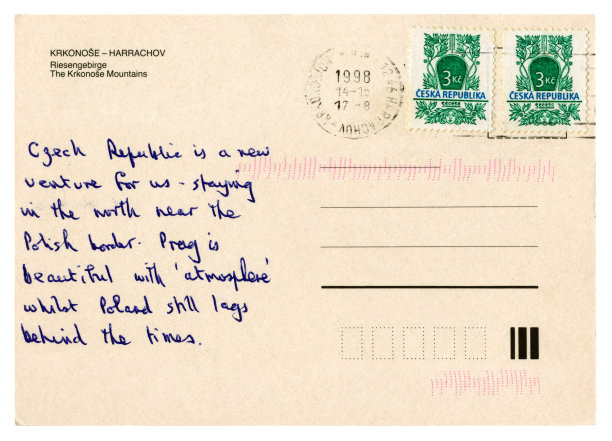 KRKONOŠE – HARRACHOV
Riesengebirge
The Krkonoše Mountains
1998
17-8
HARRACHOV
3 Kč
ČESKÁ REPUBLIKA
3 Kč
ČESKÁ REPUBLIKA
Czech Republic is a new
venture for us - staying
in the north near the
Polish border. Prag is
beautiful with 'atmosphere'
whilst Poland still lags
behind the times.